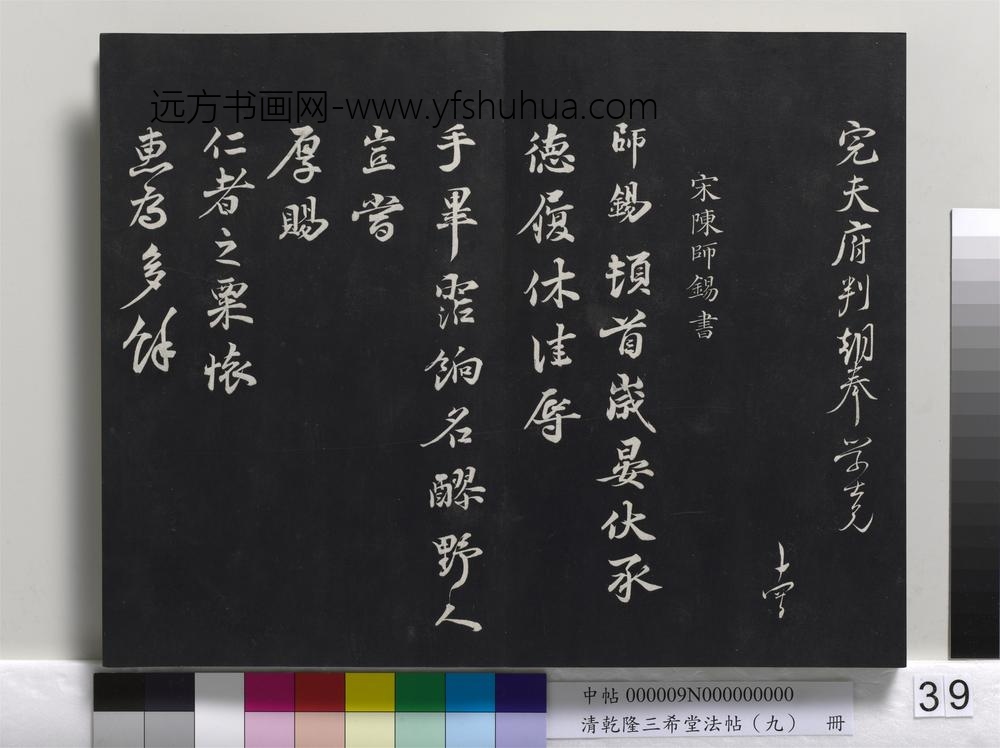 远方书画网-www.yfshuhua.com
完夫府判朝奉學克
卞
宋陳師錫書
師錫頓首歲晏伏承
德履休佳辱
手畢霑餉名醪野人
豈嘗
厚賜
仁者之粟懷
惠為多餘
中帖 000009N000000000
清乾隆三希堂法帖（九） 冊
39